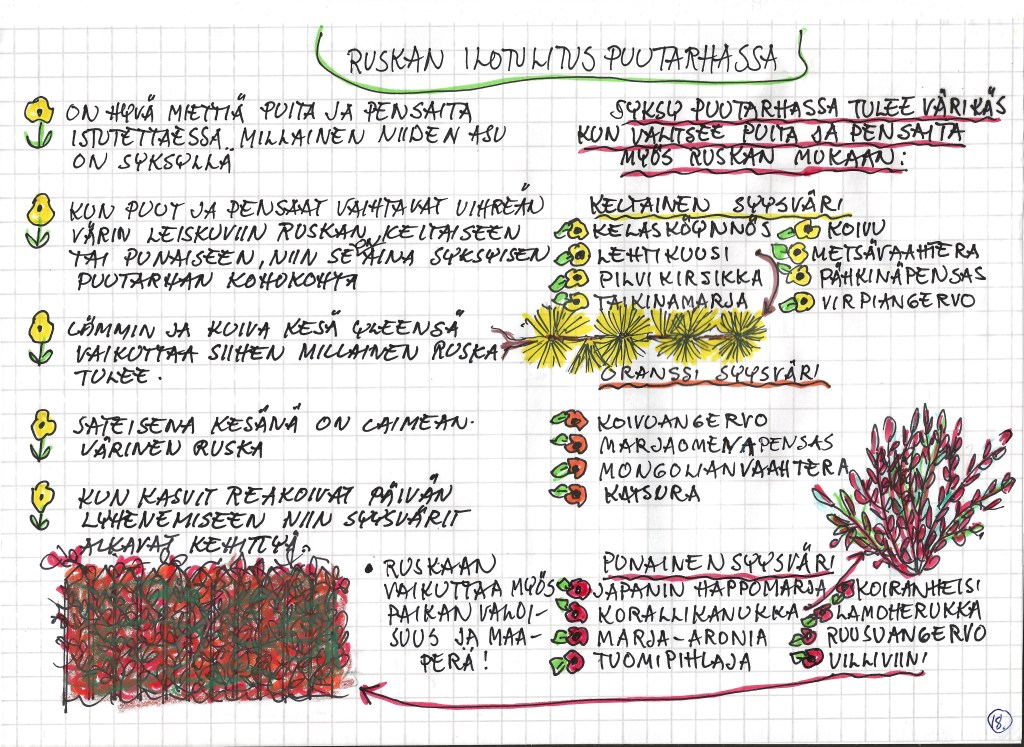 RUSKAN ILOTULITUS PUUTARHASSA
ON HYVÄ MIETTIÄ PUITA JA PENSAITA
ISTUTETTAESSA MILLAINEN NIIDEN ASU
ON SYKSYLLÄ
KUN PUUT JA PENSAAT VAIHTAVAT VIHREÄN
VÄRIN LEISKUVIIN RUSKAN, KELTAISEEN
TAI PUNAISEEN, NIIN SE ON AINA SYKSYISEN
PUUTARHAN KOHOKOHTA
LÄMMIN JA KUIVA KESÄ YLEENSÄ
VAIKUTTAA SIIHEN MILLAINEN RUSKA
TULEE.
SATEISENA KESÄNÄ ON LAIMEAN-
VÄRINEN RUSKA
KUN KASVIT REAKOIVAT PÄIVÄN
LYHENEMISEEN NIIN SYYSVÄRIT
ALKAVAT KEHITTYÄ.
• RUSKAAN
VAIKUTTAA MYÖS
PAIKAN VALOI-
SUUS JA MAA-
PERÄ!
SYKSY PUUTARHASSA TULEE VÄRIKÄS
KUN VALITSEE PUITA JA PENSAITA
MYÖS RUSKAN MUKAAN:
KELTAINEN SYYSVÄRI
KELASKÖYNNÖS
LEHTIKUUSI
PILVIKIRSIKKA
TAIKINAMARJA
KOIVU
METSÄVAAHTERA
PÄHKINÄPENSAS
VIRPIANGERVO
ORANSSI SYYSVÄRI
KOIVUANGERVO
MARJAOMENAPENSAS
MONGOLIANVAAHTERA
KATSURA
PUNAINEN SYYSVÄRI
JAPANIN HAPPOMARJA
KORALLIKANUKKA
MARJA-ARONIA
TUOMIPIHLAJA
KOIRANHEISI
LAMOHERUKKA
RUUSUANGERVO
VILLIVIINI
18.